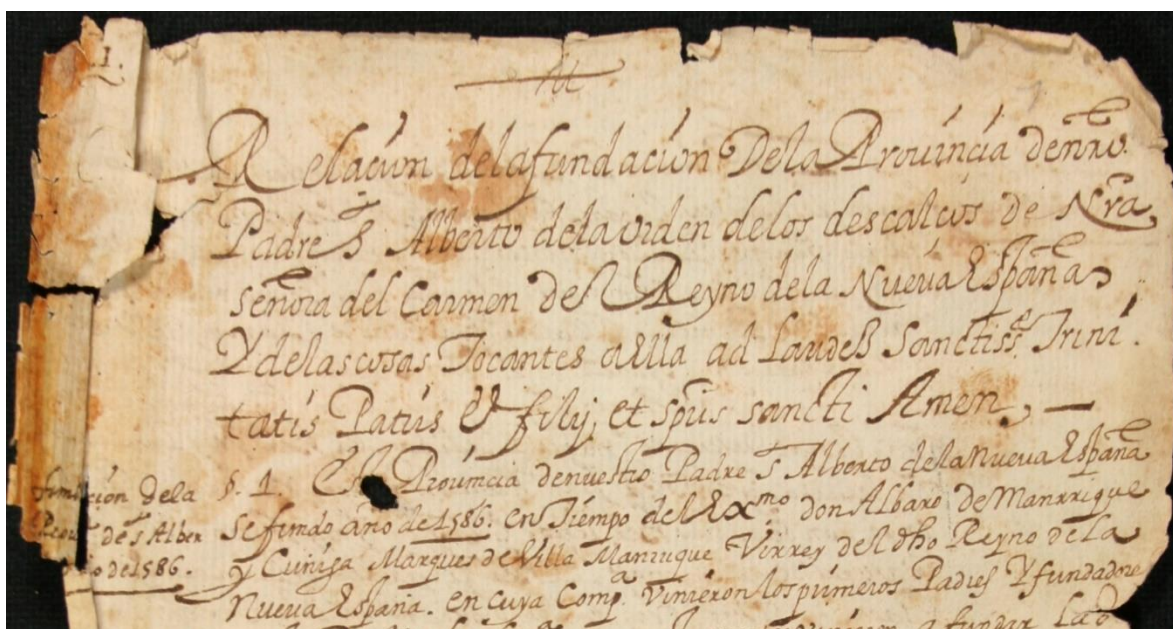 1.
Relacion dela fundacion Dela Prouincia denrõ.
Padre S Alberto dela orden delos descalços de Nrã
señora del Carmen del Reyno dela Nueva España
Y delas cosas Tocantes aella ad Laudes Sanctiss.e Trini.
tatis Patris & filij, et spũs sancti Amen,
fundacion dela
Prou.a de s Alber
año de 1586.
§. 1. La Prouincia denuestro Padre s Alberto dela Nueva España
se fundo año de 1586. en Tiempo del Exmo don Albaro de Manrrique
y Cuñiga Marques de Villa Manrrique Virrey del dho Reyno de la
Nueva España. en cuya Comp.a Vinieron los primeros Padres Y fundadore
a fundar La